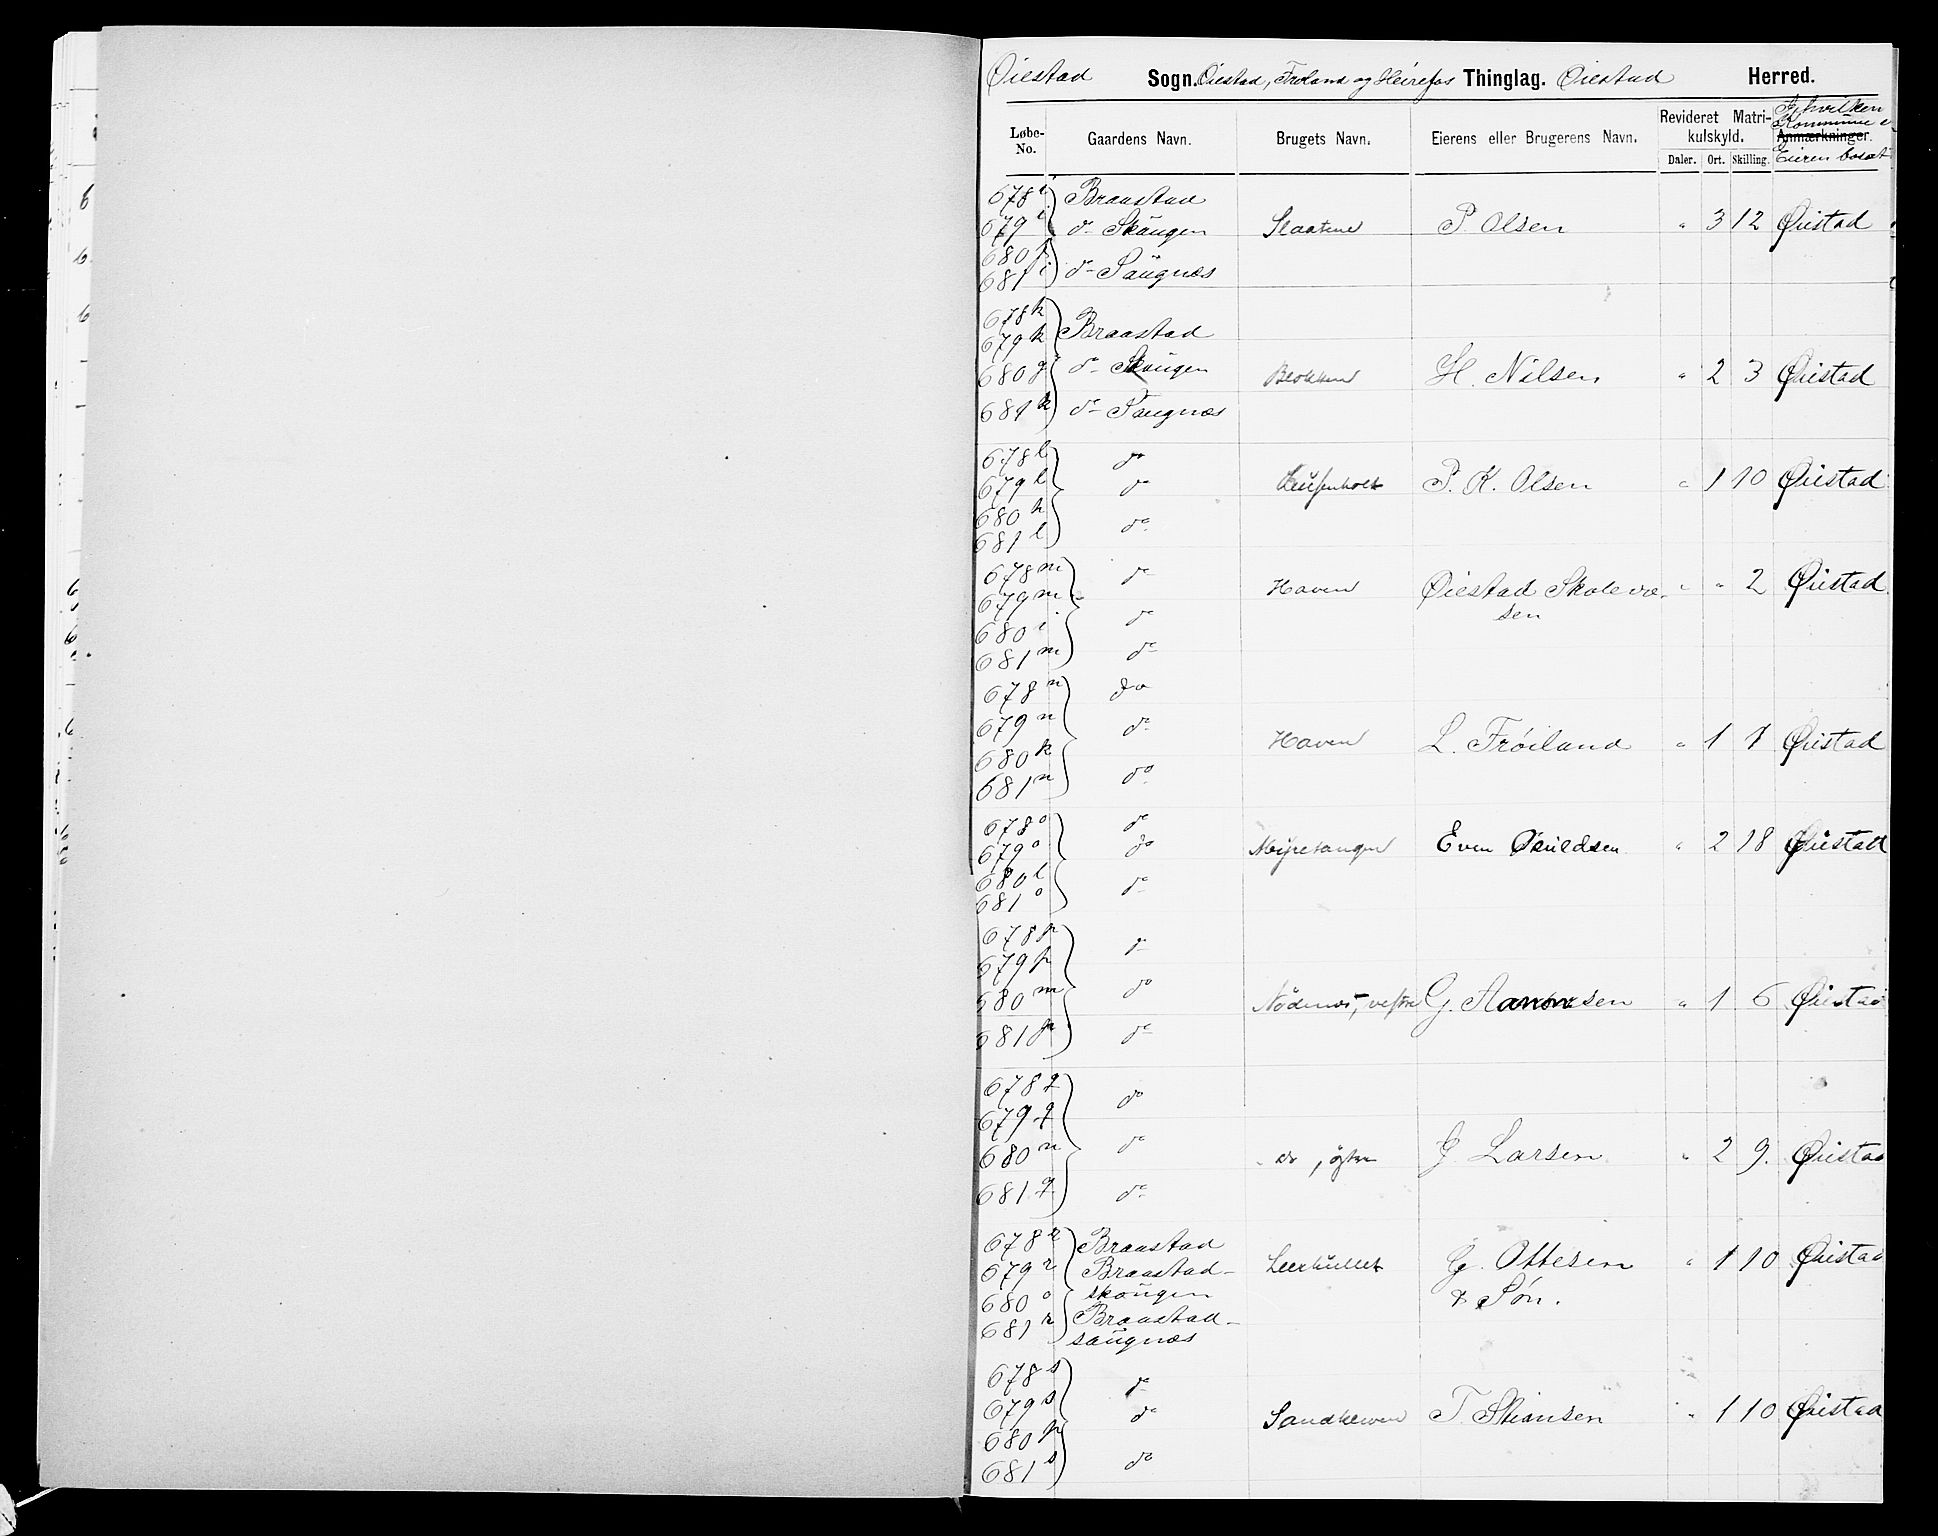 Øiestad Sogn. Øiestad, Froland og Heirefos Thinglag. Øiestad Herred.
Løbe-No. Gaardens Navn. Brugets Navn. Eierens eller Brugerens Navn. Revideret Matrikulskyld. Daler. Ort. Skilling. Anmærkninger. I hvilken Kommune er Eieren bosat
678 i Braastad
679 i do Skougen Slaatene P. Olsen " 3 12 Øiestad
680 f
681 i do Saugnæs
678 k
679 k Braastad
680 g do Skougen H. Nilsen " 2 3 Øiestad
681 k do Saugnæs
678 l do
679 l do P. K. Olsen " 1 10 Øiestad
680 h
681 l do
678 m do
679 m Haven Øiestad Skolevæ- " " 2 Øiestad
680 i do sen
681 m do
678 n do
679 n do Haven L. Frøiland " 1 1 Øiestad
680 k
681 n do
678 o do
679 o do Even " 2 18 Øiestad
680 l do
681 o
678 p do
679 p
680 m do Nødenæs, vestre G. Aanonsen " 1 6 Øiestad
681 p do
678 q do
679 q
680 n do do, østre G. Larsen " 2 9. Øiestad
681 q do
678 r Braastad
679 r Braastad- Leerhullet G. Ottesen " 1 10 Øiestad
680 o skougen & Søn.
681 r Braastad-
saugnæs
678 s do
679 s do Sandkleven T. " 1 10 Øiestad
680 p
681 s do